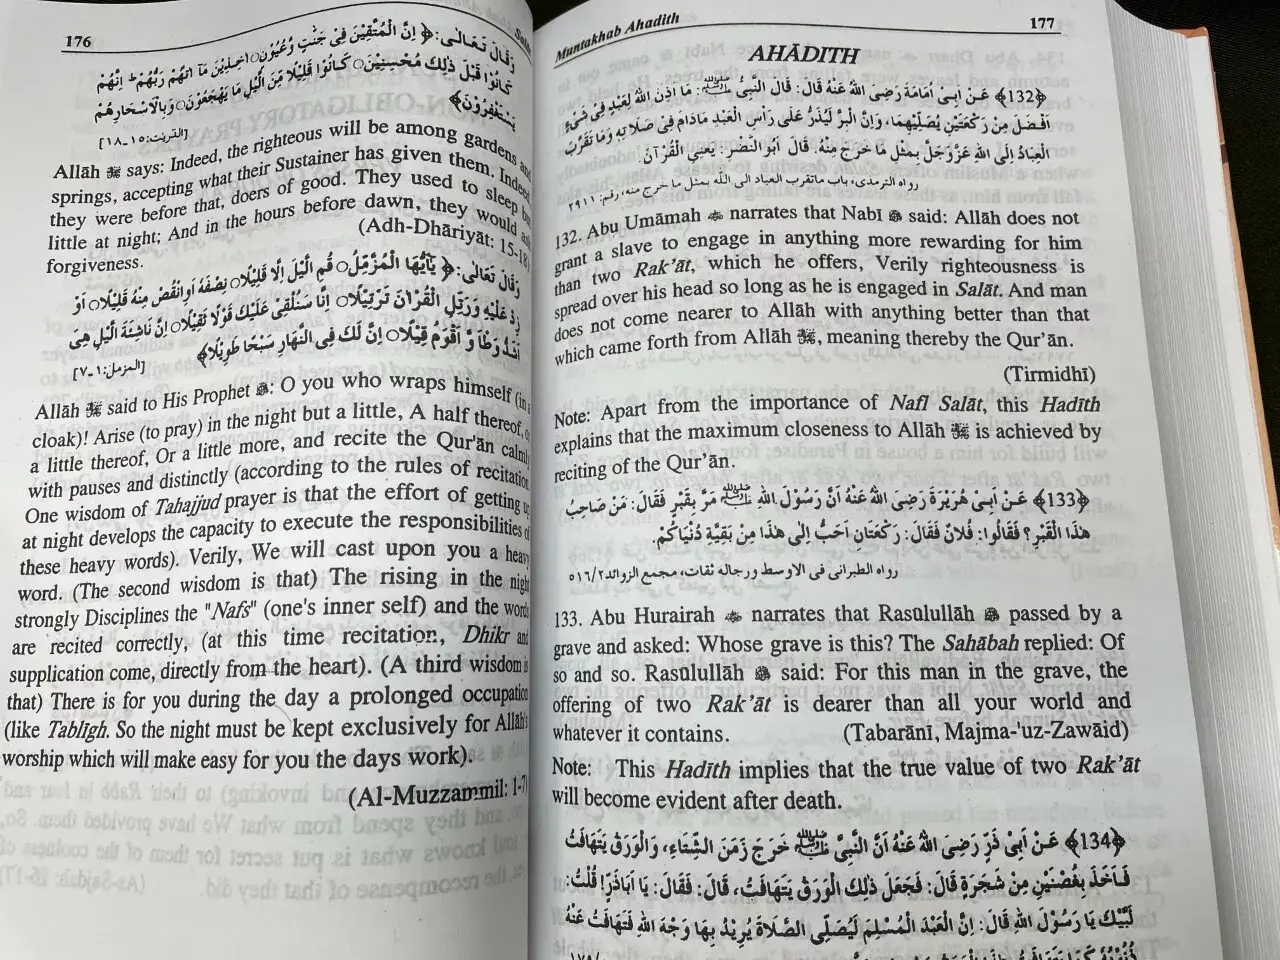 176
Salāt
وَقَالَ تَعَالٰى: ﴿ اِنَّ الْمُتَّقِيْنَ فِىْ جَنّٰتٍ وَّعُيُوْنٍ○ اٰخِذِيْنَ مَآ اٰتٰهُمْ رَبُّهُمْ ؕ اِنَّهُمْ
كَانُوْا قَبْلَ ذٰلِكَ مُحْسِنِيْنَ○ كَانُوْا قَلِيْلًا مِّنَ الَّيْلِ مَا يَهْجَعُوْنَ○ وَبِالْاَسْحَارِ هُمْ
يَسْتَغْفِرُوْنَ﴾
[الذّٰريٰت:١٥۔١٨]
Allāh ﷻ says: Indeed, the righteous will be among gardens and
springs, accepting what their Sustainer has given them. Indeed
they were before that, doers of good. They used to sleep but
little at night; And in the hours before dawn, they would ask
forgiveness.
(Adh-Dhāriyāt: 15-18)
وَقَالَ تَعَالٰى: ﴿ يٰٓاَيُّهَا الْمُزَّمِّلُ○ قُمِ الَّيْلَ اِلَّا قَلِيْلًا○ نِّصْفَهٗٓ اَوِ انْقُصْ مِنْهُ قَلِيْلًا○ اَوْ
زِدْ عَلَيْهِ وَرَتِّلِ الْقُرْاٰنَ تَرْتِيْلًا○ اِنَّا سَنُلْقِىْ عَلَيْكَ قَوْلًا ثَقِيْلًا○ اِنَّ نَاشِئَةَ الَّيْلِ هِىَ
اَشَدُّ وَطْاً وَّ اَقْوَمُ قِيْلًا○ اِنَّ لَكَ فِى النَّهَارِ سَبْحًا طَوِيْلًا﴾
[المزمل:١۔٧]
Allāh ﷻ said to His Prophet ﷺ: O you who wraps himself (in a
cloak)! Arise (to pray) in the night but a little, A half thereof, or
a little thereof, Or a little more, and recite the Qur'ān calmly
with pauses and distinctly (according to the rules of recitation
One wisdom of Tahajjud prayer is that the effort of getting up
at night develops the capacity to execute the responsibilities of
these heavy words). Verily, We will cast upon you a heavy
word. (The second wisdom is that) The rising in the night
strongly Disciplines the "Nafs" (one's inner self) and the words
are recited correctly, (at this time recitation, Dhikr and
supplication come, directly from the heart). (A third wisdom is
that) There is for you during the day a prolonged occupation
(like Tablīgh. So the night must be kept exclusively for Allāh's
worship which will make easy for you the days work).
(Al-Muzzammil: 1-7)
Muntakhab Ahadith
177
AHĀDITH
﴿132﴾ عَنْ اَبِىْ اُمَامَةَ رَضِىَ اللهُ عَنْهُ قَالَ: قَالَ النَّبِىُّ ﷺ: مَا اَذِنَ اللهُ لِعَبْدٍ فِىْ شَىْءٍ
اَفْضَلَ مِنْ رَكْعَتَيْنِ يُصَلِّيْهِمَا، وَاِنَّ الْبِرَّ لَيُذَرُّ عَلٰى رَاْسِ الْعَبْدِ مَادَامَ فِىْ صَلَاتِهٖ وَمَا تَقَرَّبَ
الْعِبَادُ اِلَى اللهِ عَزَّوَجَلَّ بِمِثْلِ مَا خَرَجَ مِنْهُ. قَالَ اَبُو النَّضْرِ: يَعْنِى الْقُرْآنَ.
رواه الترمذى، باب ماتقرب العباد الى الله بمثل ما خرج منه، رقم: ٢٩١١
132. Abu Umāmah ؓ narrates that Nabī ﷺ said: Allāh does not
grant a slave to engage in anything more rewarding for him
than two Rak'āt, which he offers, Verily righteousness is
spread over his head so long as he is engaged in Salāt. And man
does not come nearer to Allāh with anything better than that
which came forth from Allāh ﷻ, meaning thereby the Qur'ān.
(Tirmidhī)
Note: Apart from the importance of Nafl Salāt, this Hadīth
explains that the maximum closeness to Allāh ﷻ is achieved by
reciting of the Qur'ān.
﴿133﴾ عَنْ اَبِىْ هُرَيْرَةَ رَضِىَ اللهُ عَنْهُ اَنَّ رَسُوْلَ اللهِ ﷺ مَرَّ بِقَبْرٍ فَقَالَ: مَنْ صَاحِبُ
هٰذَا الْقَبْرِ؟ فَقَالُوْا: فُلَانٌ فَقَالَ: رَكْعَتَانِ اَحَبُّ اِلٰى هٰذَا مِنْ بَقِيَّةِ دُنْيَاكُمْ.
رواه الطبرانى فى الاوسط ورجاله ثقات، مجمع الزوائد ٥١٦/٢
133. Abu Hurairah ؓ narrates that Rasūlullāh ﷺ passed by a
grave and asked: Whose grave is this? The Sahābah replied: Of
so and so. Rasūlullāh ﷺ said: For this man in the grave, the
offering of two Rak'āt is dearer than all your world and
whatever it contains. (Tabarānī, Majma-'uz-Zawāid)
Note: This Hadīth implies that the true value of two Rak'āt
will become evident after death.
﴿134﴾ عَنْ اَبِىْ ذَرٍّ رَضِىَ اللهُ عَنْهُ اَنَّ النَّبِىَّ ﷺ خَرَجَ زَمَنَ الشِّتَاءِ، وَالْوَرَقُ يَتَهَافَتُ
فَاَخَذَ بِغُصْنَيْنِ مِنْ شَجَرَةٍ قَالَ: فَجَعَلَ ذٰلِكَ الْوَرَقُ يَتَهَافَتُ، قَالَ: فَقَالَ: يَا اَبَاذَرٍّ! قُلْتُ:
لَبَّيْكَ يَا رَسُوْلَ اللهِ قَالَ: اِنَّ الْعَبْدَ الْمُسْلِمَ لَيُصَلِّى الصَّلَاةَ يُرِيْدُ بِهَا وَجْهَ اللهِ فَتَهَافَتُ عَنْهُ